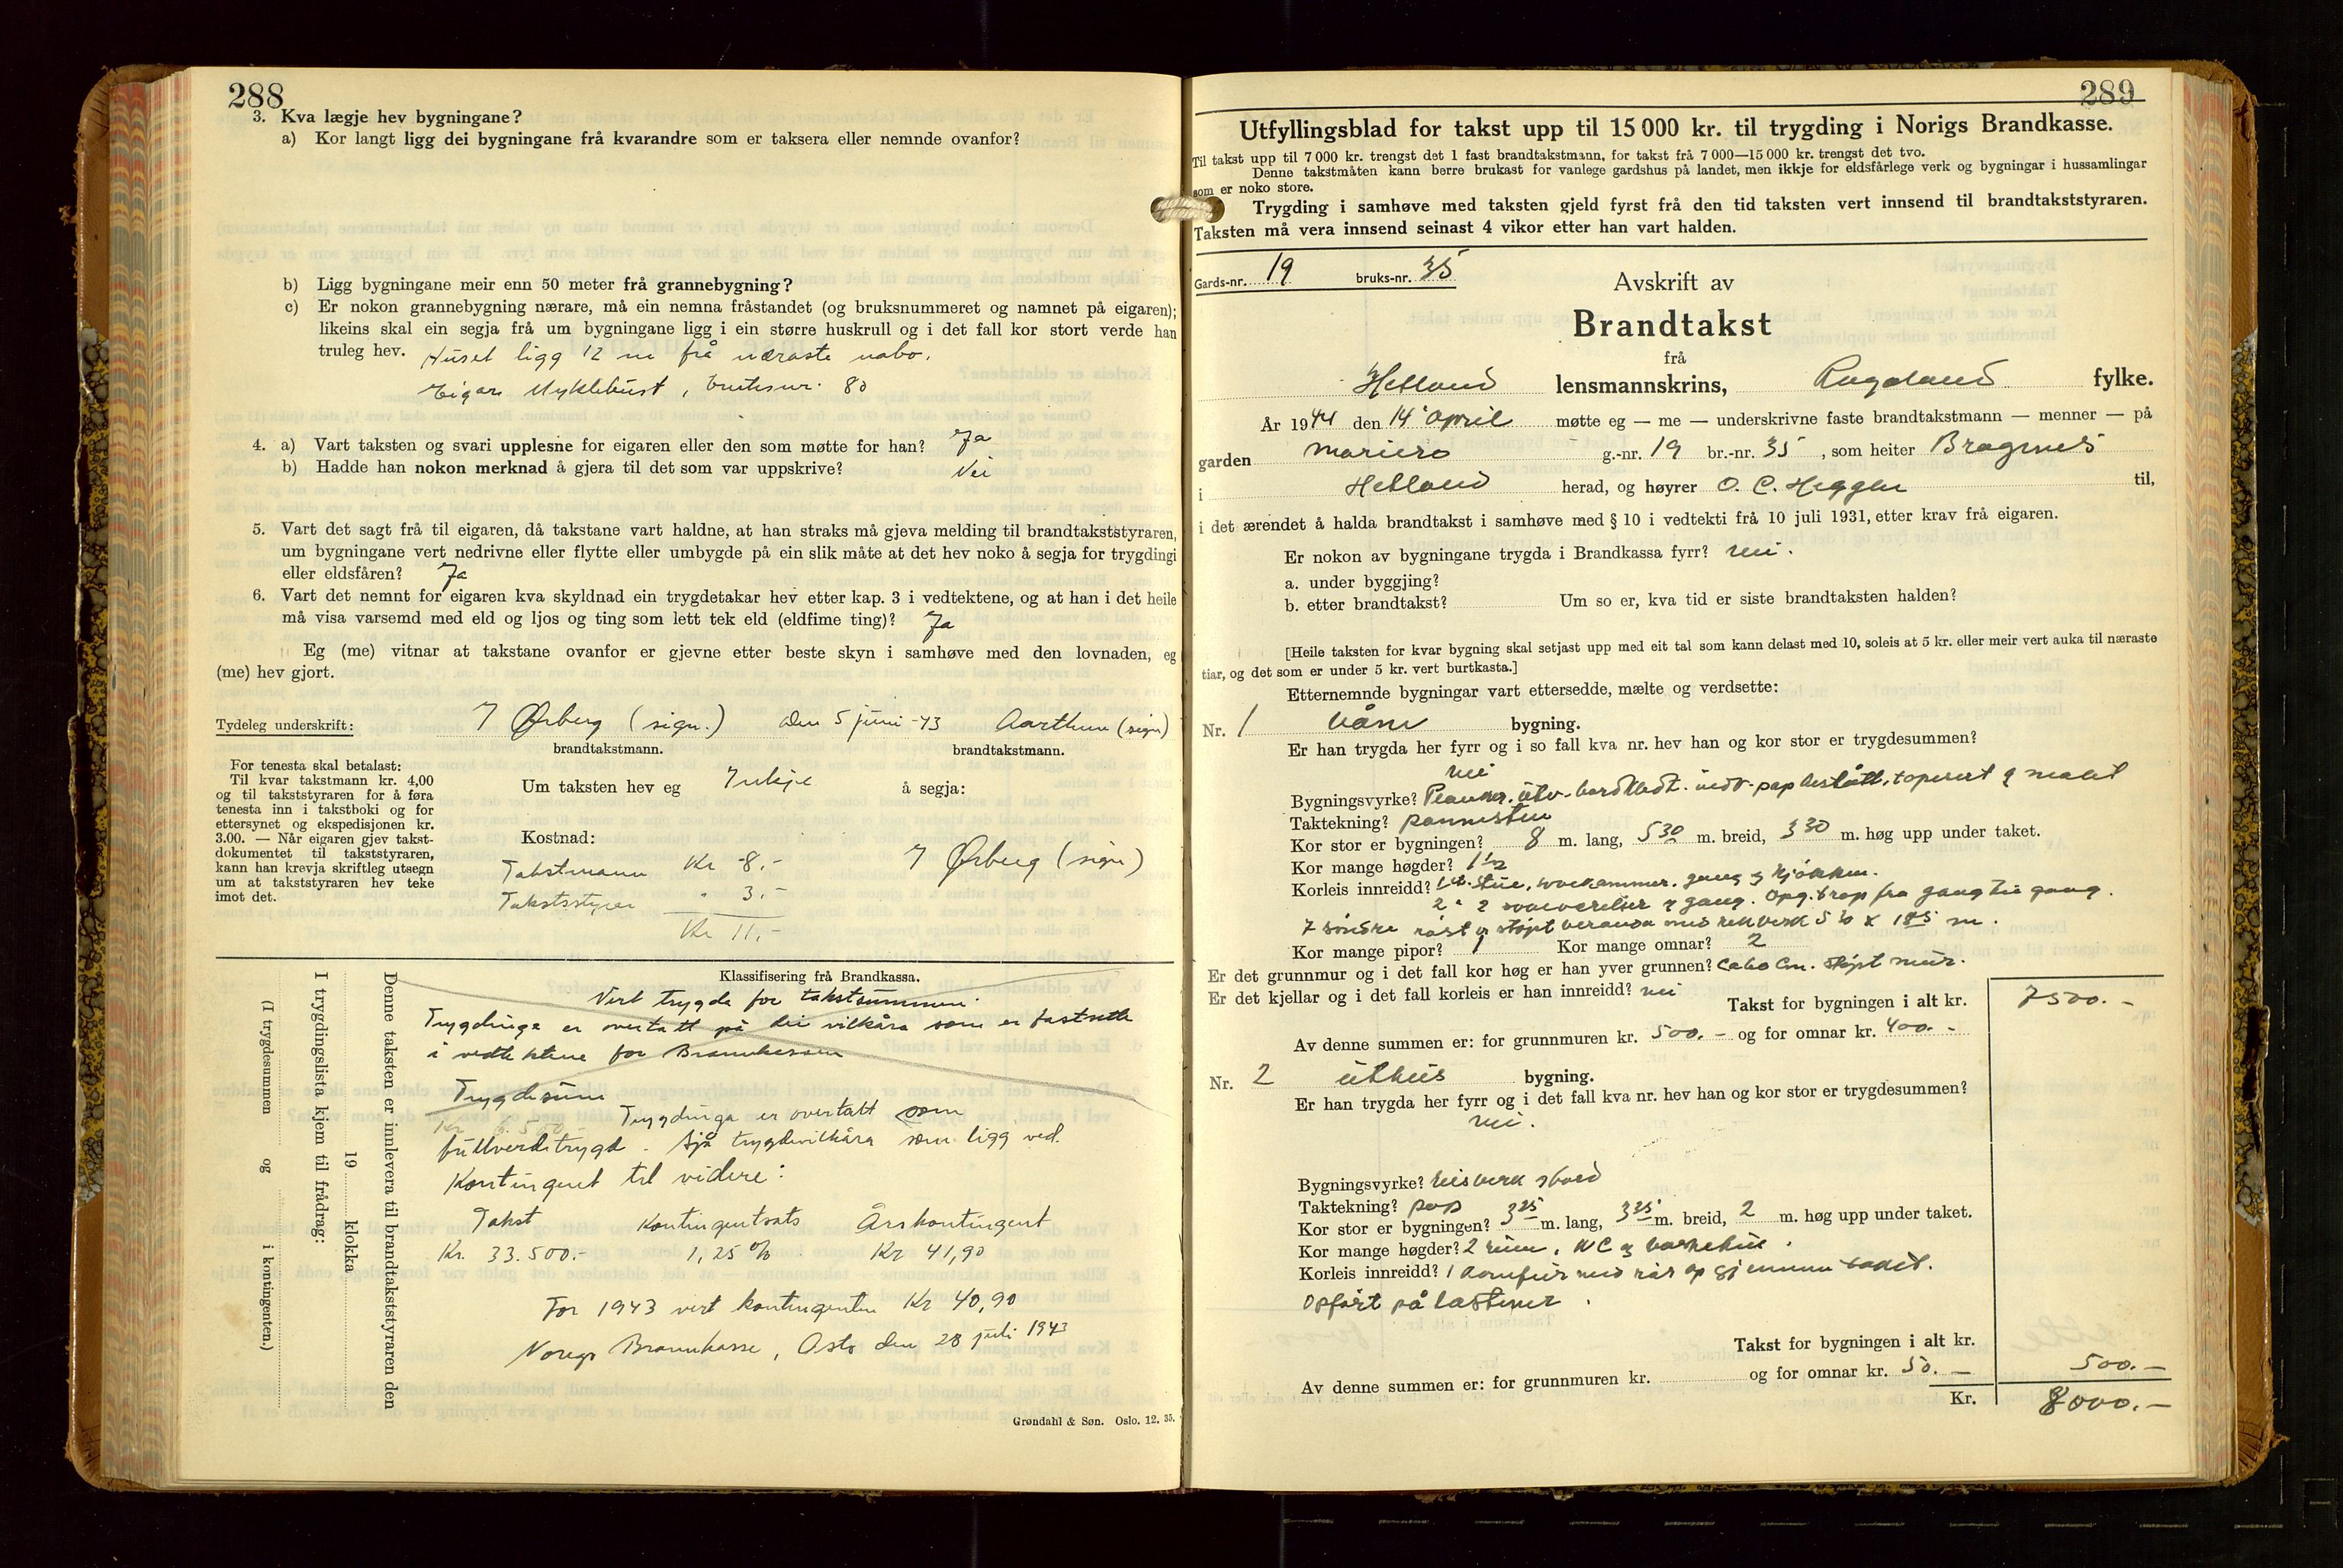 288
3. Kva lægje hev bygningane?
a) Kor langt ligg dei bygningane frå kvarandre som er taksera eller nemnde ovanfor?
b) Ligg bygningane meir enn 50 meter frå grannebygning?
c) Er nokon grannebygning nærare, må ein nemna fråstandet (og bruksnummeret og namnet på eigaren);
likeins skal ein segja frå um bygningane ligg i ein større huskrull og i det fall kor stort verde han
truleg hev. Huset ligg 12 m frå næraste nabo.
Eigar Myklebust, bruksnr. 80
4. a) Vart taksten og svari upplesne for eigaren eller den som møtte for han? Ja
b) Hadde han nokon merknad å gjera til det som var uppskrive? Nei
5. Vart det sagt frå til eigaren, då takstane vart haldne, at han straks må gjeva melding til brandtakststyraren,
um bygningane vert nedrivne eller flytte eller umbygde på ein slik måte at det hev noko å segja for trygdingi
eller eldsfåren? Ja
6. Vart det nemnt for eigaren kva skyldnad ein trygdetakar hev etter kap. 3 i vedtektene, og at han i det heile
må visa varsemd med eld og ljos og ting som lett tek eld (eldfime ting)? Ja
Eg (me) vitnar at takstane ovanfor er gjevne etter beste skyn i samhøve med den lovnaden, eg
(me) hev gjort.
Tydeleg underskrift: J Ørberg (sign.) den 5 juni -43 Aarthun (sign)
brandtakstmann. brandtakstmann.
For tenesta skal betalast:
Til kvar takstmann kr. 4,00
og til takststyraren for å føra
tenesta inn i takstboki og for
ettersynet og ekspedisjonen kr.
3.00. — Når eigaren gjev takst-
dokumentet til takststyraren,
kann han krevja skriftleg utsegn
um at takststyraren hev teke
imot det.
Um taksten hev eg Inkje å segja:
Kostnad:
Takstmann Kr 8.-
Takststyrar " 3.-
Kr 11,-
J Ørberg (sign)
Klassifisering frå Brandkassa.
Vert trygda for takstsummen.
Trygdinga er overtatt på dei vilkåra som er fastsette
i vedtektene for Brannkassen
Trygdesum
Kr 6.500.- Trygdinga er overtatt som
fullverditrygd. Sjå trygdevilkåra som ligg ved.
Kontingent til videre:
Takst Kontingentsats Årskontingent
Kr. 33.500.- 1,25 ‰ Kr 41,90
For 1943 vert kontingenten Kr 40,90
Noregs Brannkasse, Oslo den 28 juli 1943
Denne taksten er innlevera til brandtakststyraren den
19 klokka
I trygdingslista kjem til frådrag:
(I trygdesummen og i kontingenten.)
Grøndahl & Søn. Oslo. 12. 35.
289
Utfyllingsblad for takst upp til 15 000 kr. til trygding i Norigs Brandkasse.
Til takst upp til 7 000 kr. trengst det 1 fast brandtakstmann, for takst frå 7 000—15 000 kr. trengst det tvo.
Denne takstmåten kann berre brukast for vanlege gardshus på landet, men ikkje for eldsfårlege verk og bygningar i hussamlingar
som er noko store.
Trygding i samhøve med taksten gjeld fyrst frå den tid taksten vert innsend til brandtakststyraren.
Taksten må vera innsend seinast 4 vikor etter han vart halden.
Gards-nr. 19 bruks-nr. 35
Avskrift av
Brandtakst
frå
Hetland lensmannskrins, Rogaland fylke.
År 1944 den 14' April møtte eg — me — underskrivne faste brandtakstmann — menner — på
garden Mariero g.-nr. 19 br.-nr. 35, som heiter Bragenes
i Hetland herad, og høyrer O. C. Heggen til,
i det ærendet å halda brandtakst i samhøve med § 10 i vedtekti frå 10 juli 1931, etter krav frå eigaren.
Er nokon av bygningane trygda i Brandkassa fyrr? nei.
a. under byggjing?
b. etter brandtakst? Um so er, kva tid er siste brandtaksten halden?
[Heile taksten for kvar bygning skal setjast upp med eit tal som kann delast med 10, soleis at 5 kr. eller meir vert auka til næraste
tiar, og det som er under 5 kr. vert burtkasta.]
Etternemnde bygningar vart ettersedde, mælte og verdsette:
Nr. 1 Våne bygning.
Er han trygda her fyrr og i so fall kva nr. hev han og kor stor er trygdesummen?
nei
Bygningsvyrke? Planker. utv. bordkledt. indv. papbeslått, tapesert & malet
Taktekning? pannesten
Kor stor er bygningen? 8 m. lang, 5 30 m. breid, 3 30 m. høg upp under taket.
Kor mange høgder? 1 1/2
Korleis innreidd? 1 et. stue, sovekammer, gang & kjøkken.
2" 2 soveværelser & gang. Opg. trap fra gang til gang.
7 søndre røst & støpt veranda med rekkverk 5 30 x 1 85 m.
Kor mange pipor? 1 Kor mange omnar? 2
Er det grunnmur og i det fall kor høg er han yver grunnen? Ca 60 Cm. støpt mur.
Er det kjellar og i det fall korleis er han innreidd? nei
Takst for bygningen i alt kr. 7500.-
Av denne summen er: for grunnmuren kr. 500.- og for omnar kr. 400.-
Nr. 2 uthus bygning.
Er han trygda her fyrr og i det fall kva nr. hev han og kor stor er trygdesummen?
nei.
Bygningsvyrke? reisverk & bord
Taktekning? pap
Kor stor er bygningen? 3 25 m. lang, 3 25 m. breid, 2 m. høg upp under taket.
Kor mange høgder? 2 rum, WC & vaskehus.
Korleis innreidd? 1 komfur med rør op gjennom taket.
Opført på
Takst for bygningen i alt kr. 500.-
Av denne summen er: for grunnmuren kr. og for omnar kr. 50.-
Kr. 8000.-